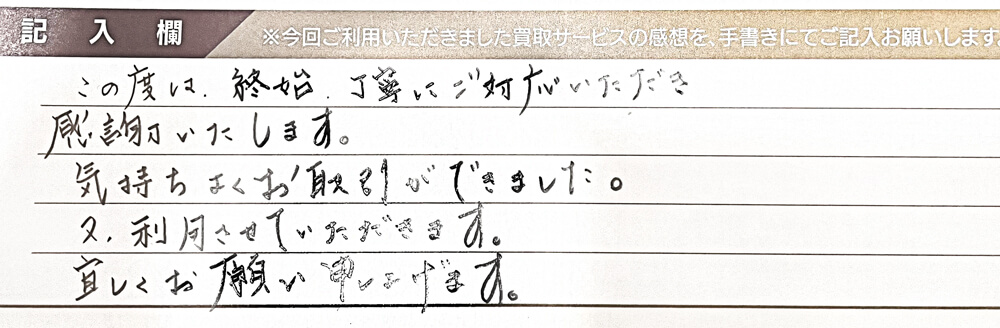 記入欄
※今回ご利用いただきました買取サービスの感想を、手書きにてご記入お願いします
この度は、終始、丁寧にご対応いただき
感謝いたします。
気持ちよくお取引ができました。
又、利用させていただきます。
宜しくお願い申しあげます。